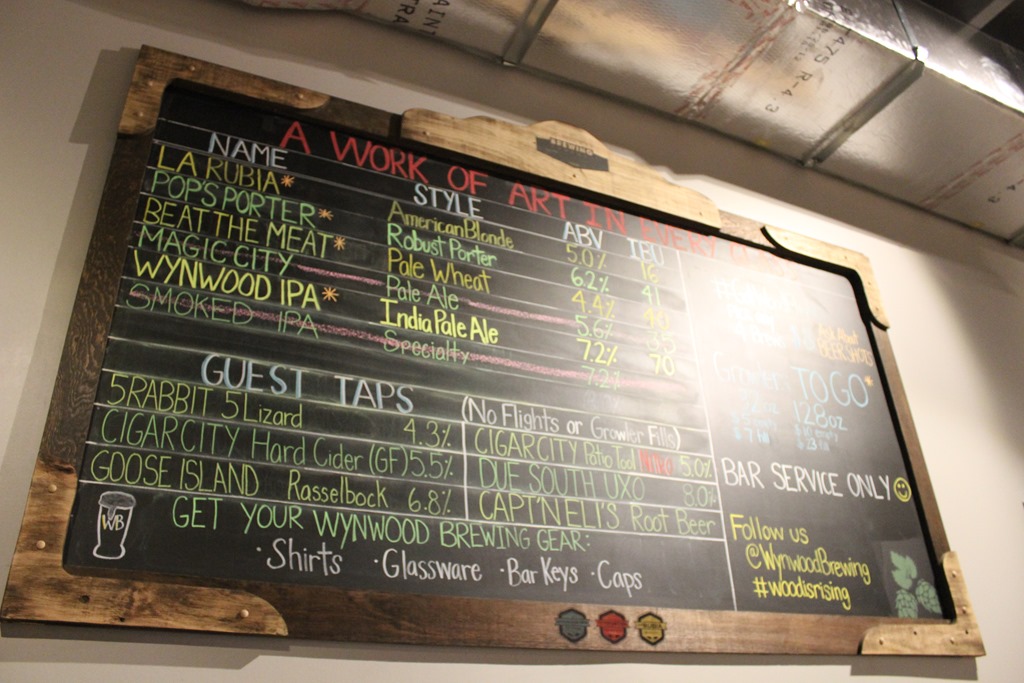 A WORK OF ART IN EVERY
NAME STYLE ABV IBU
LA RUBIA* American Blonde 5.0% 16
POP'S PORTER* Robust Porter 6.2% 41
BEAT THE MEAT* Pale Wheat 4.4% 40
MAGIC CITY Pale Ale 5.6% 35
WYNWOOD IPA* India Pale Ale 7.2% 70
SMOKED IPA Specialty 7.2%
GUEST TAPS (No Flights or Growler Fills)
5RABBIT 5Lizard 4.3%
CIGAR CITY Hard Cider (GF) 5.5%
GOOSE ISLAND Rasselbock 6.8%
CIGAR CITY Patio Tool 5.0%
DUE SOUTH UXO 8.0%
CAPT'N ELI'S Root Beer
GET YOUR WYNWOOD BREWING GEAR:
·Shirts ·Glassware ·Bar Keys ·Caps
WB
Ask About
BEER SHOTS
Growlers TO GO*
32oz 128oz
BAR SERVICE ONLY
Follow us
@WynwoodBrewing
#woodisrising
475 R-4 3